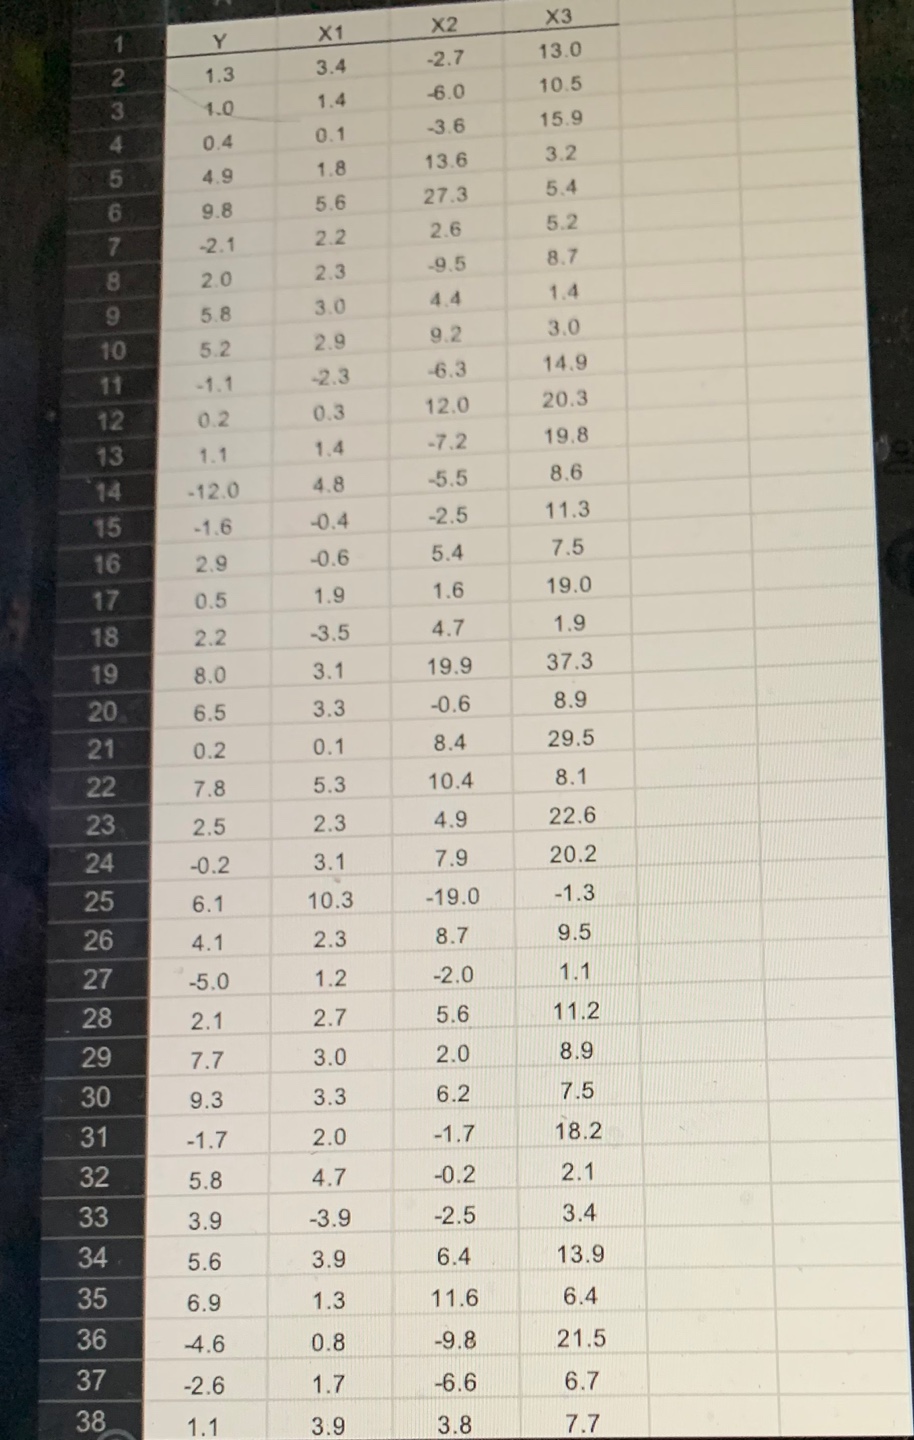 1 Y X1 X2 X3
2 1.3 3.4 -2.7 13.0
3 1.0 1.4 -6.0 10.5
4 0.4 0.1 -3.6 15.9
5 4.9 1.8 13.6 3.2
6 9.8 5.6 27.3 5.4
7 -2.1 2.2 2.6 5.2
8 2.0 2.3 -9.5 8.7
9 5.8 3.0 4.4 1.4
10 5.2 2.9 9.2 3.0
11 -1.1 -2.3 -6.3 14.9
12 0.2 0.3 12.0 20.3
13 1.1 1.4 -7.2 19.8
14 -12.0 4.8 -5.5 8.6
15 -1.6 -0.4 -2.5 11.3
16 2.9 -0.6 5.4 7.5
17 0.5 1.9 1.6 19.0
18 2.2 -3.5 4.7 1.9
19 8.0 3.1 19.9 37.3
20 6.5 3.3 -0.6 8.9
21 0.2 0.1 8.4 29.5
22 7.8 5.3 10.4 8.1
23 2.5 2.3 4.9 22.6
24 -0.2 3.1 7.9 20.2
25 6.1 10.3 -19.0 -1.3
26 4.1 2.3 8.7 9.5
27 -5.0 1.2 -2.0 1.1
28 2.1 2.7 5.6 11.2
29 7.7 3.0 2.0 8.9
30 9.3 3.3 6.2 7.5
31 -1.7 2.0 -1.7 18.2
32 5.8 4.7 -0.2 2.1
33 3.9 -3.9 -2.5 3.4
34 5.6 3.9 6.4 13.9
35 6.9 1.3 11.6 6.4
36 -4.6 0.8 -9.8 21.5
37 -2.6 1.7 -6.6 6.7
38 1.1 3.9 3.8 7.7